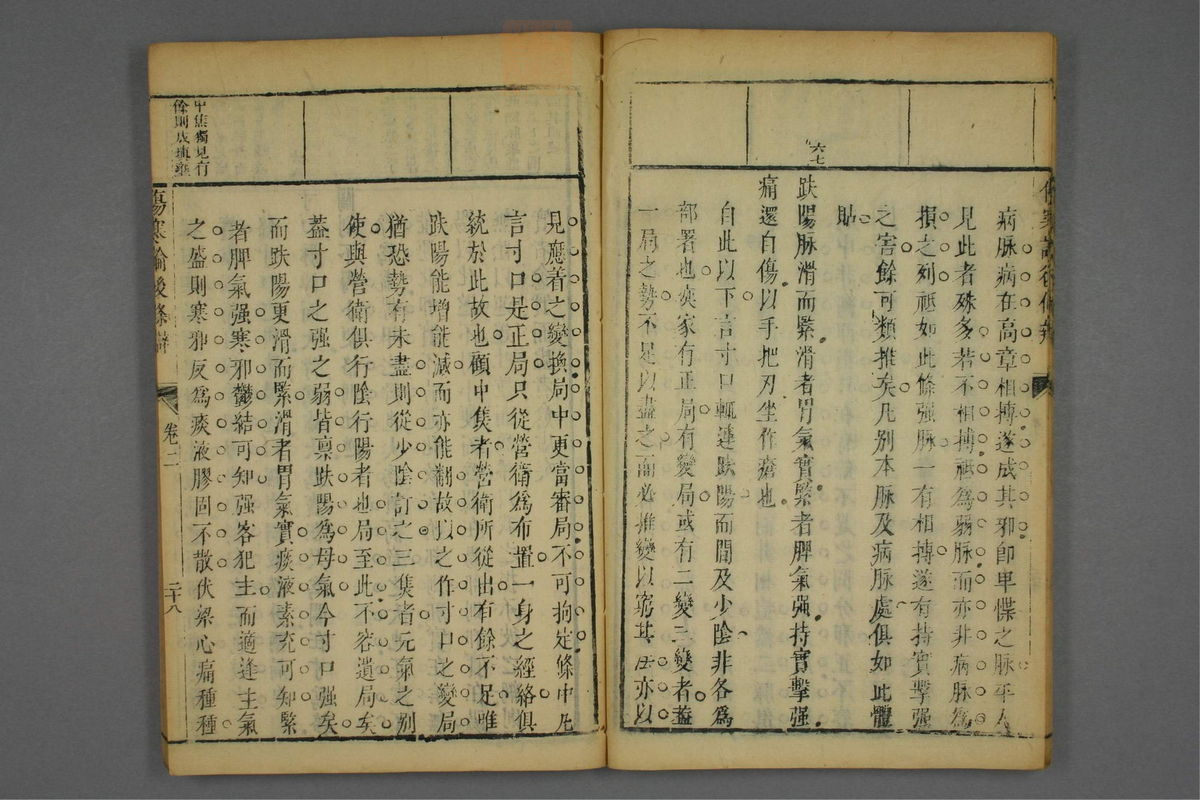 六七
病脉病在高章相搏遂成其邪卽單慄之脉平人
見此者殊多若不相搏祗為弱脉而亦非病脉為
損之列祗如此條强脉一有相搏遂有持實擊强
之害餘可類推矣凡别本脉及病脉處俱如此體
貼
趺陽脉滑而緊滑者胃氣實緊者脾氣强持實擊强
痛還自傷以手把刃坐作瘡也
自此以下言寸口輒連趺陽而間及少陰非各為
部署也奕家有正局有變局或有二變三變者葢
一局之勢不足以盡之而必推變以窮其亦以
見應着之變換局中更當審局不可拘定條中凡
言寸口是正局只從營衛為布置一身之經絡俱
統於此故也顧中焦者營衛所從出有餘不足唯
趺陽能增能減而亦能翻故以之作寸口之變局
猶恐勢有未盡則從少陰訂之三焦者元氣之别
使與營衛俱行陰行陽者也局至此不容遺局矣
葢寸口之强之弱皆禀趺陽為母氣今寸口强矣
而趺陽更滑而緊滑者胃氣實痰液素充可知緊
者脾氣强寒邪鬱結可知强客犯主而適逢主氣
之盛則寒邪反為痰液膠固不散伏梁心痛種種
中焦獨見有
餘則成
傷寒論後條辯
卷二
二十八